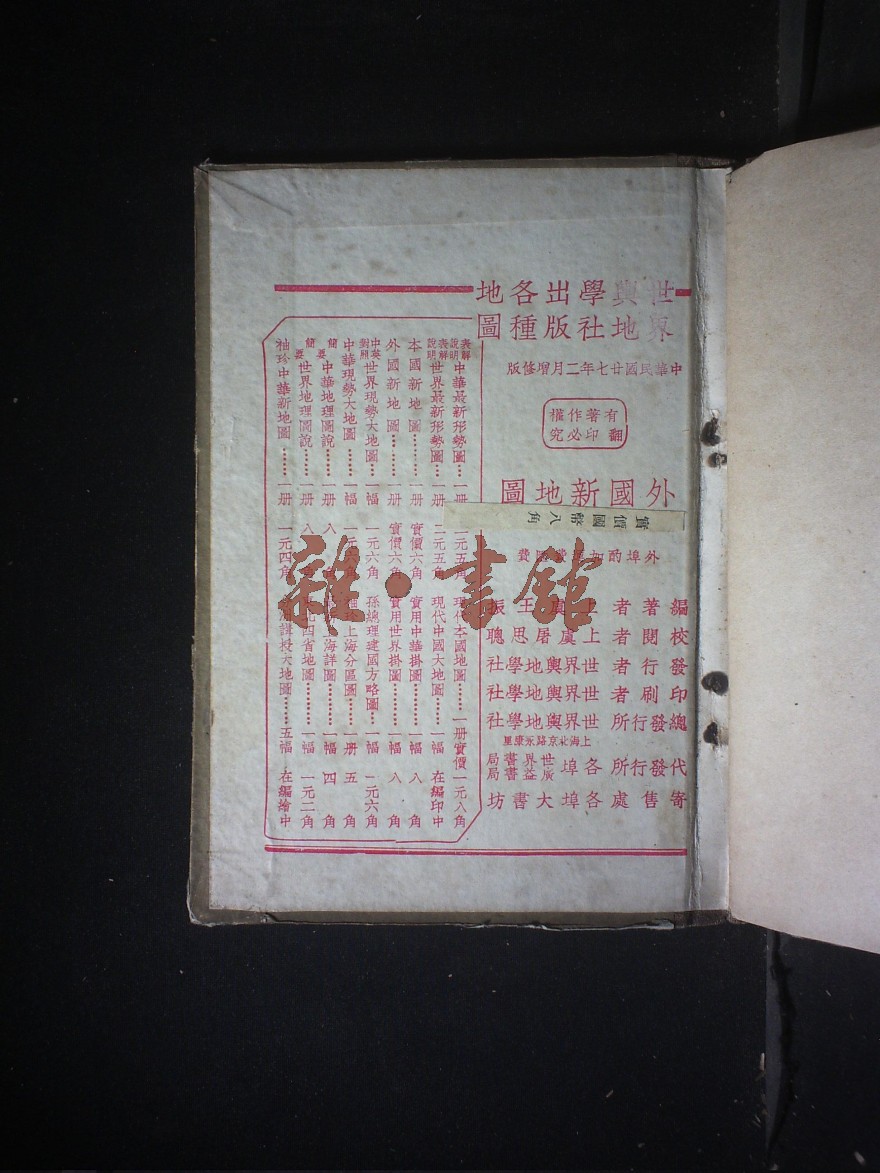 世界輿地學社出版各種地圖
中華民國廿七年二月增修版
有著作權
翻印必究
外國新地圖
實價國幣八角
外埠酌加
費
編著者 上虞王振
校閱者 上虞屠思聰
發行者 世界輿地學社
印刷者 世界輿地學社
總發行所 世界輿地學社
上海北京路永康里
代發行所 各埠 世界書局 廣益書局
寄售處 各埠大書坊
表解說明 中華最新形勢圖……一册 二元五角
表解說明 世界最新形勢圖……一册 二元五角
本國新地圖……一册 實價六角
外國新地圖……一册 實價六角
中英對照 世界現勢大地圖……一幅 一元六角
中華現勢大地圖……一幅 一元六角
簡要 中華地理圖說……一册 八
簡要 世界地理圖說……一册 八角
袖珍中華新地圖……一册 一元四角
現代本國地圖……一册 實價一元八角
現代中國大地圖……一幅 在編印中
實用中華掛圖……一幅 八角
實用世界掛圖……一幅 八角
孫總理建國方略圖……一幅 一元六角
上海分區圖……一册 五角
海詳圖……一幅 四角
北四省地圖……一幅 一元二角
講授大地圖……五幅 在編繪中
雜·書館